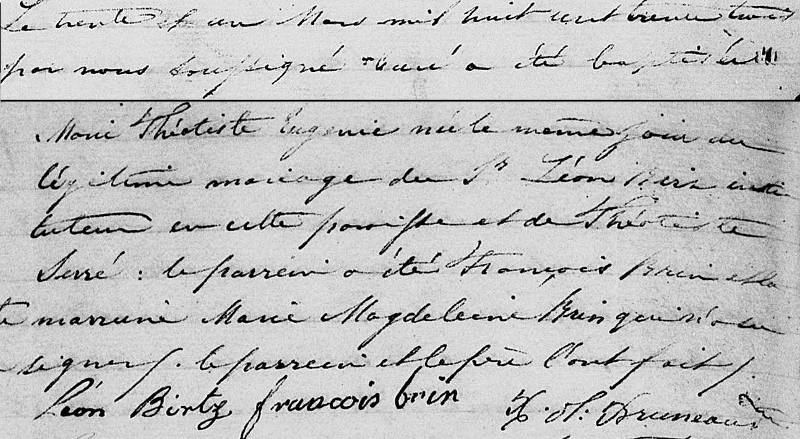 Le trente et un Mars mil huit cent trente trois
par nous soussigné curé a été baptisée
Marie Théotiste Eugenie née le même jour du
légitime mariage du Sr Léon Birtz insti
tuteur en cette paroisse et de Théotiste
Serré : le parrein a été François Brin et la
marraine Marie Magdeleine Brin qui n'a su
signer . le parrein et le père l'ont fait .
Léon Birtz francois brin